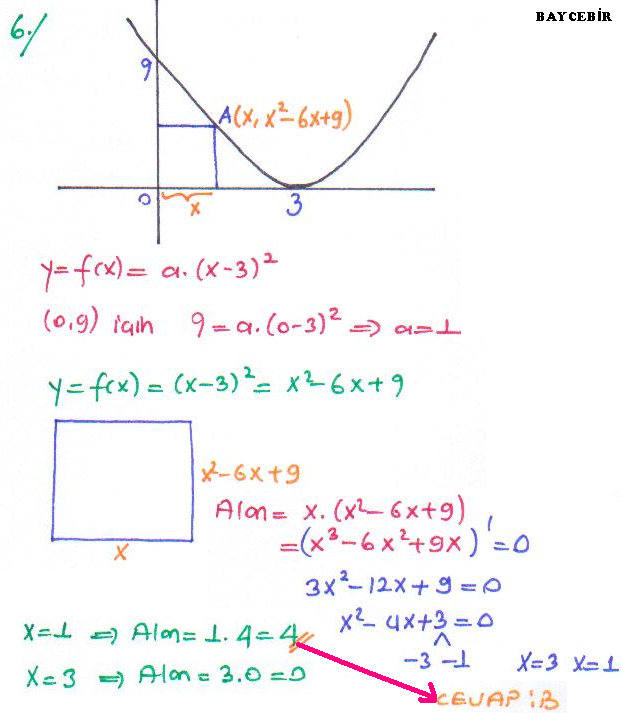 6./
BAYCEBİR
9
A(x, x²-6x+9)
0
x
3
y=f(x)= a.(x-3)²
(0,9) için 9=a.(0-3)² ⇒ a=1
y=f(x)=(x-3)²= x²-6x+9
x²-6x+9
x
Alan= x.(x²-6x+9)
=(x³-6x²+9x)'=0
3x²-12x+9=0
x²-4x+3=0
-3 -1
x=3 x=1
x=1 ⇒ Alan=1.4=4
x=3 ⇒ Alan=3.0=0
CEVAP:B